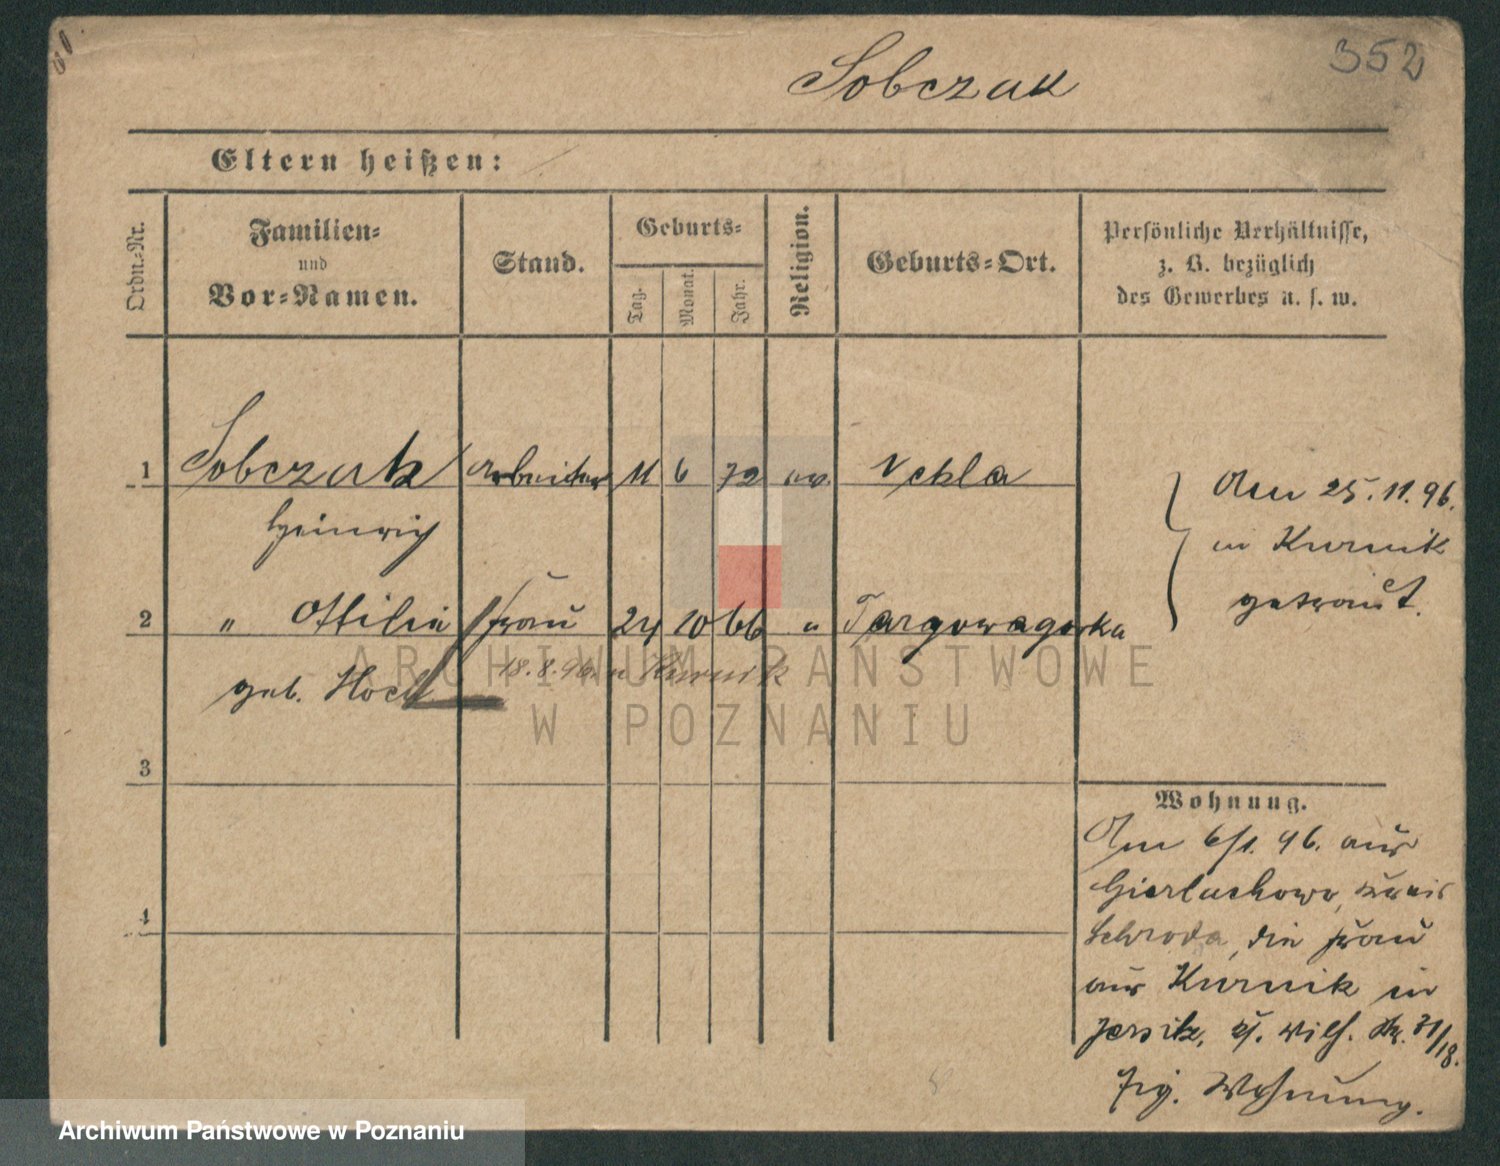 352
Sobczak
Eltern heißen:
Ordn.-Nr.
Familien-
und
Vor-Namen.
Stand.
Geburts-
Tag.
Monat.
Jahr.
Religion.
Geburts-Ort.
Persönliche Verhältnisse,
z. B. bezüglich
des Gewerbes u. s. w.
1 Sobczak Arbeiter 11 6 72 ev. Nekla
Heinrich
Am 25.11.96.
in Kurnik
getraut.
2 " Ottilie Frau 24 10 66 " Targowagorka
geb. Hoch
18.8.96. in Kurnik
ARCHIWUM PAŃSTWOWE
W POZNANIU
3
4
Wohnung.
Am 6/1. 96. aus
Gierlachowo, Kreis
Schroda, die Frau
aus Kurnik in
Jersitz, K. Wilh. Str. 31/18.
Wohnung.
Archiwum Państwowe w Poznaniu